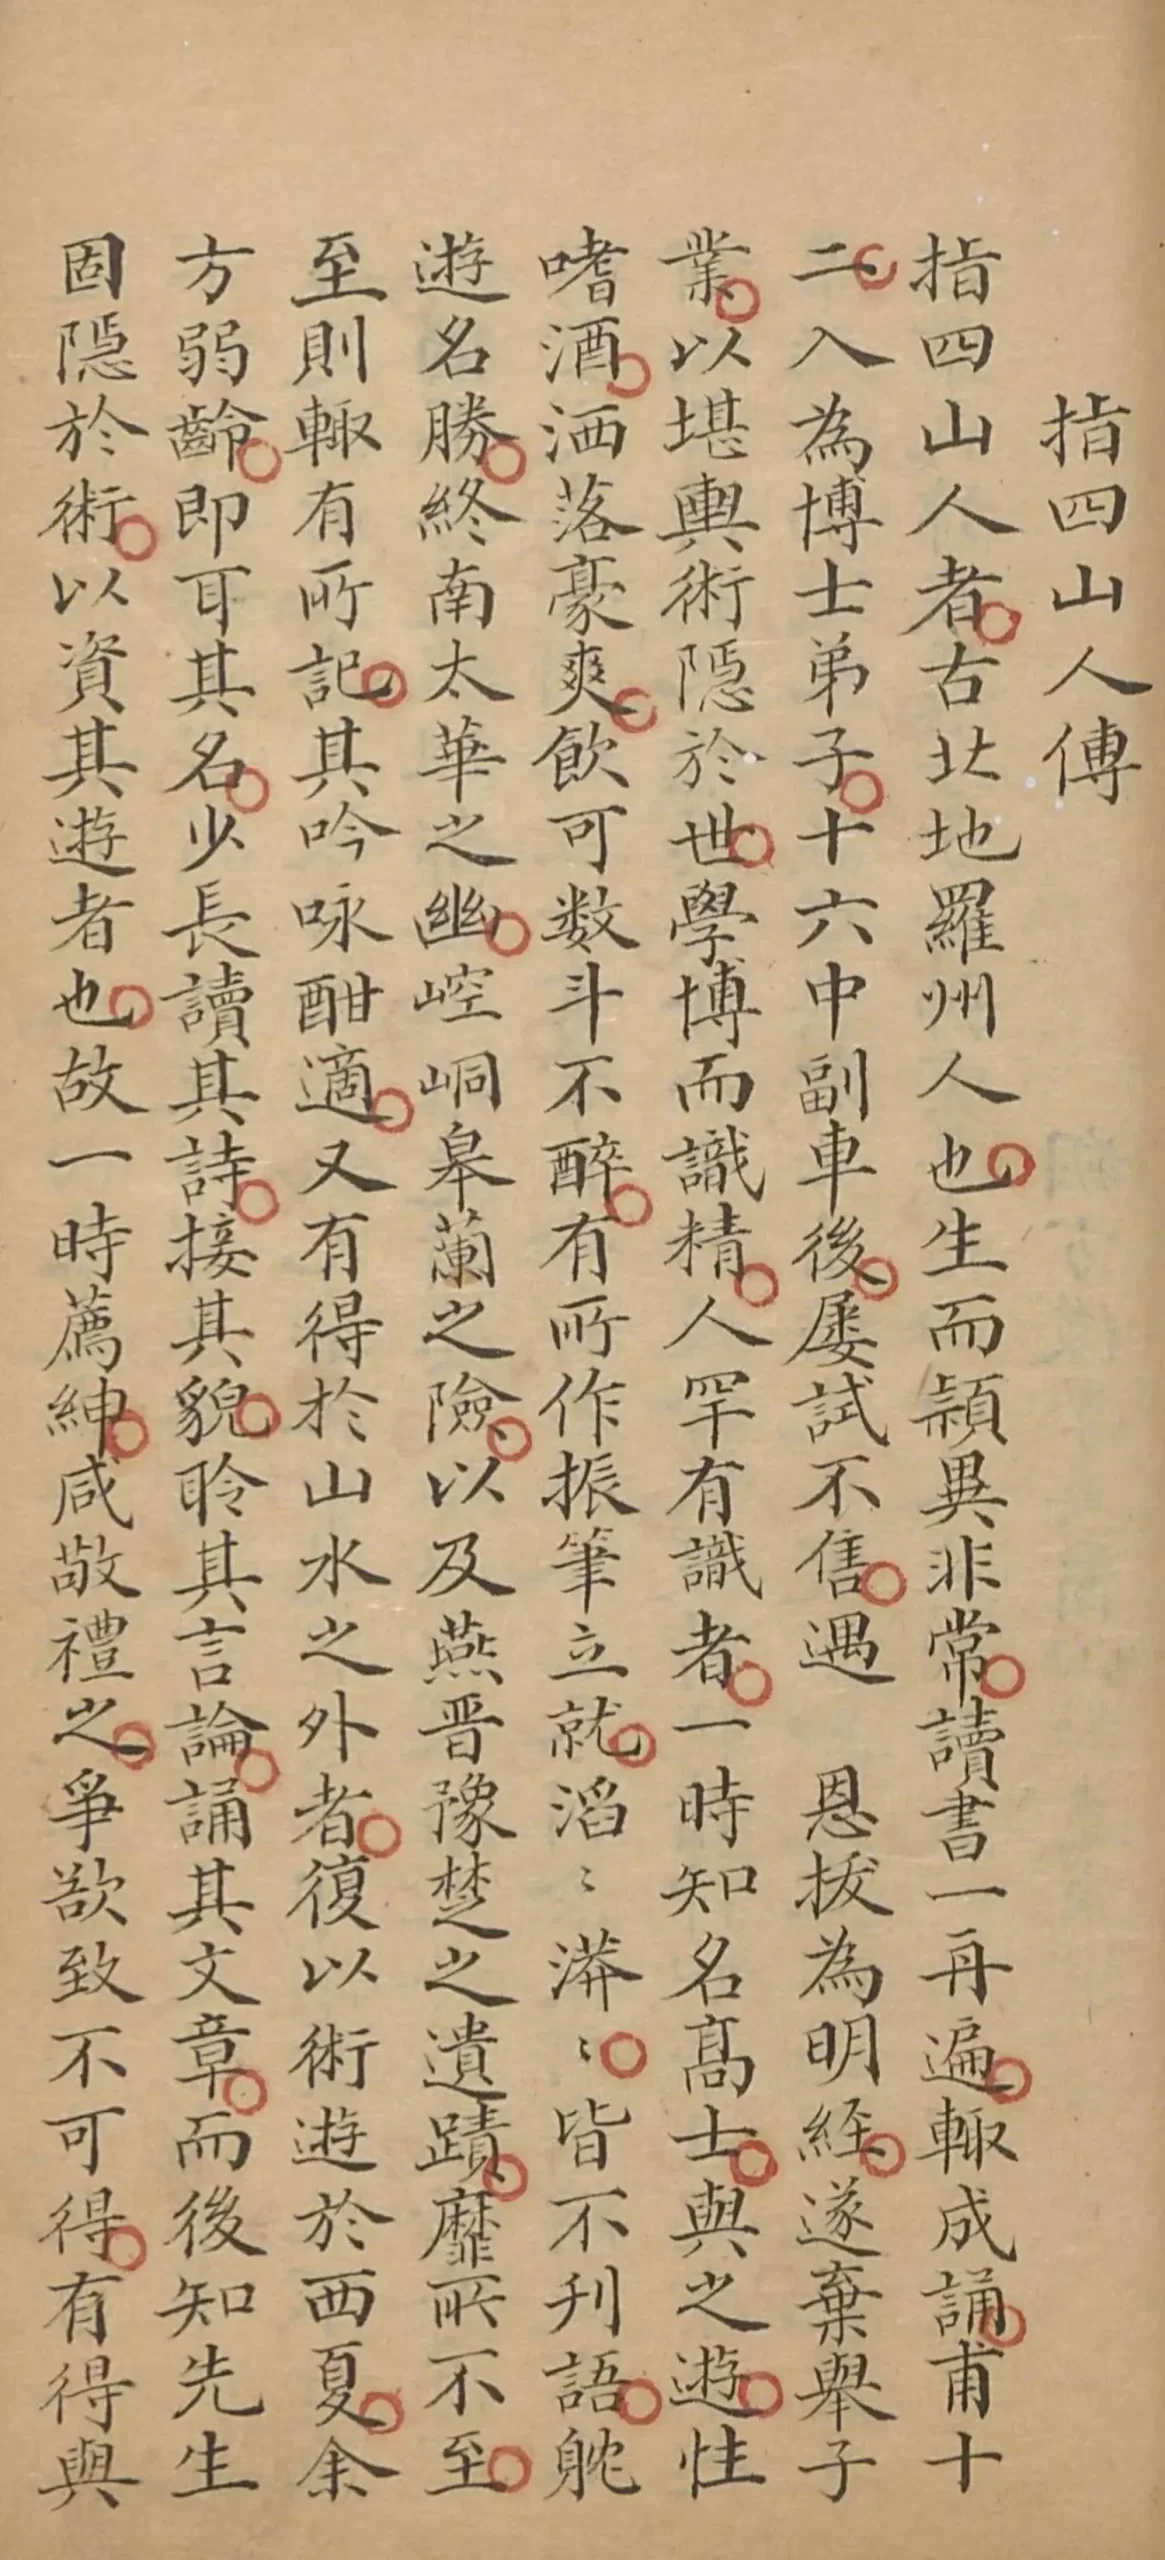 指四山人傳
指四山人者古北地羅州人也生而頴異非常讀書一再遍輙成誦甫十
二入為博士弟子十六中副車後屡試不售遇　恩拔為明經遂棄舉子
業以堪輿術隱於世學博而識精人罕有識者一時知名髙士與之遊性
嗜酒洒落豪爽飲可数斗不醉有所作振筆立就滔〻漭〻皆不刋語躭
遊名勝終南太華之幽崆峒皋蘭之險以及燕晋豫楚之遺蹟靡所不至
至則輙有所記其吟咏酣適又有得於山水之外者復以術遊於西夏余
方弱齡即耳其名少長讀其詩接其貌聆其言論誦其文章而後知先生
固隱於術以資其遊者也故一時薦紳咸敬禮之爭欲致不可得有得與